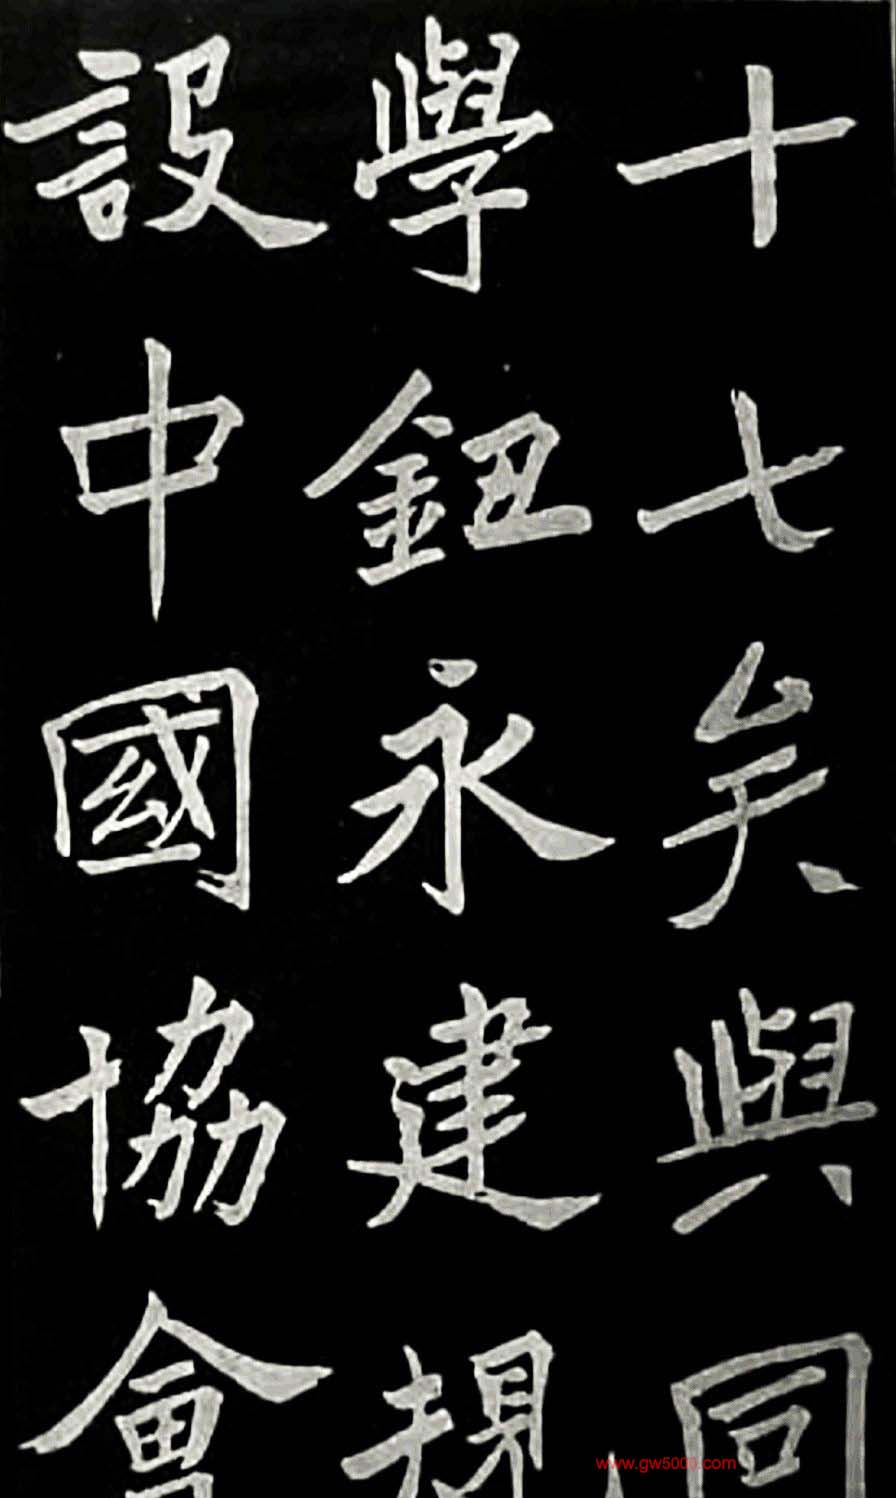 十七矣與同
學鈕永建規
設中國協會
www.gw5000.com